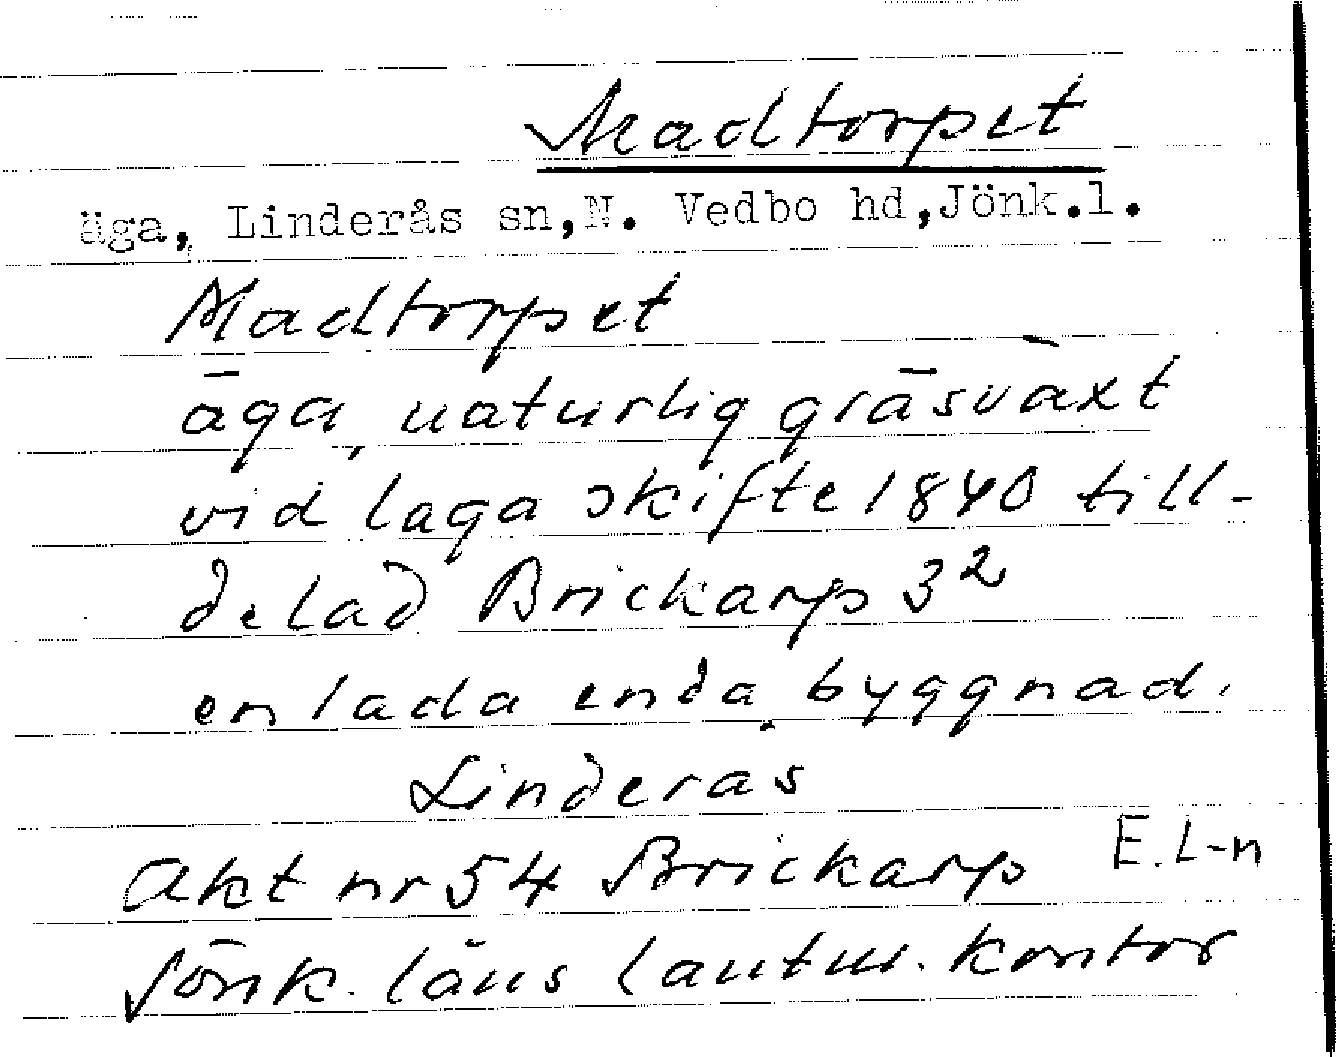 Madtorpet
äga, Linderås sn,N. Vedbo hd,Jönk.l.
Madtorpet
äga, naturlig gräsväxt
vid laga skifte 1840 till-
delad Brickarp 3²
en lada enda byggnad.
Linderas
Akt nr 54 Brickarp E. L-n
Jönk. läns lantm. kontor